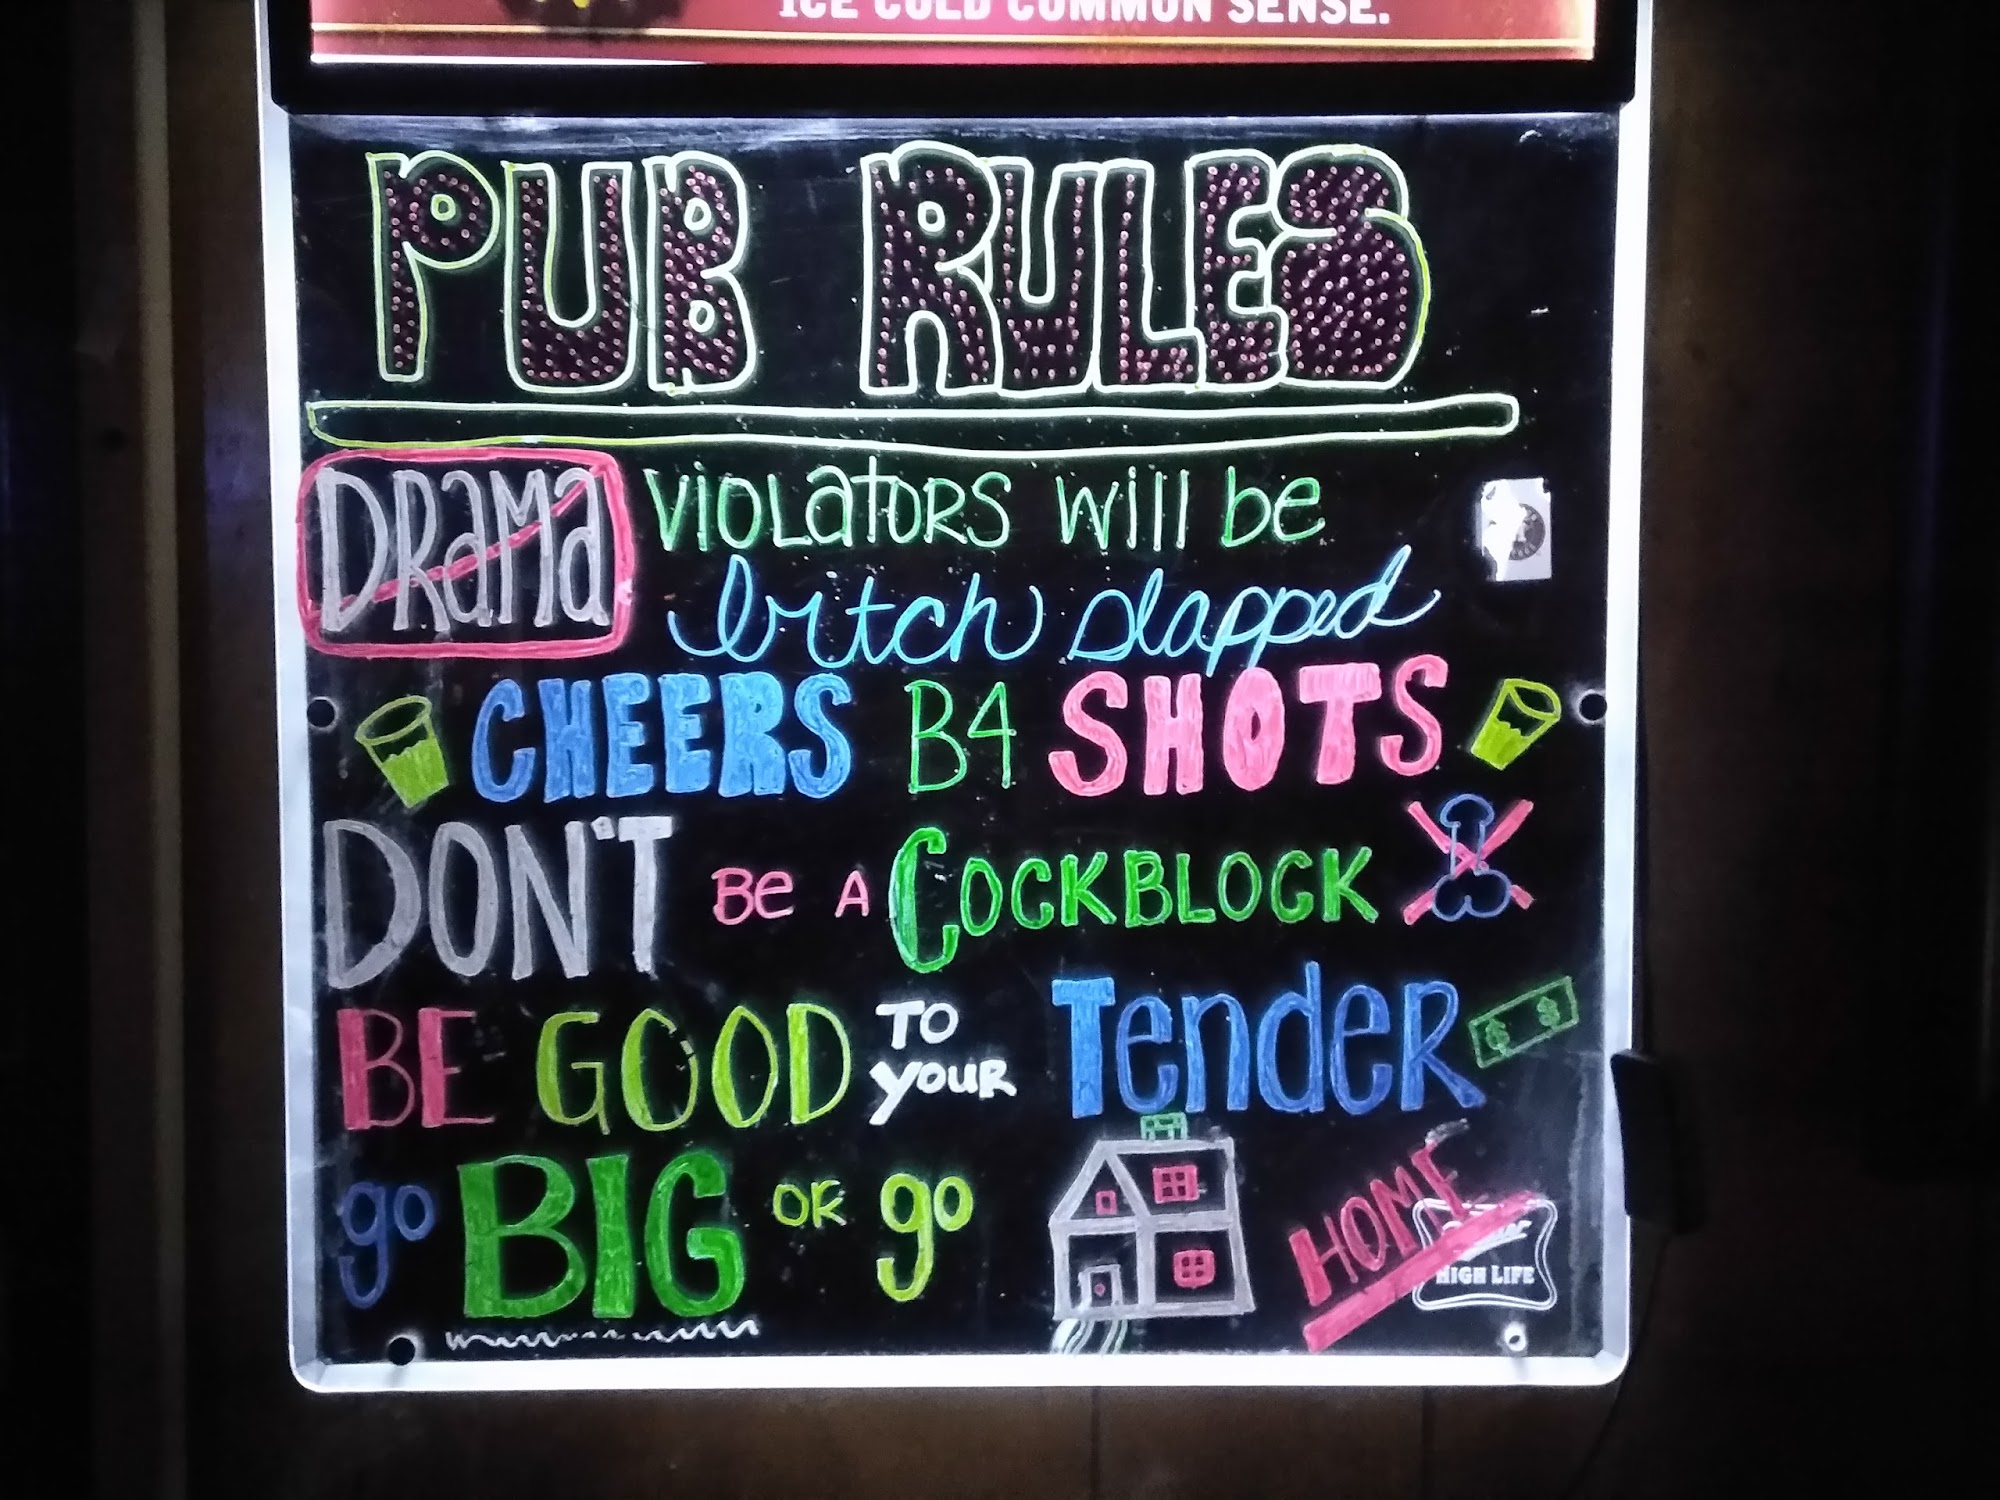 ICE COLD COMMON SENSE.
PUB RULES
DRaMa VioLatoRS will be
bitch slapped
CHEERS B4 SHOTS
DON'T Be A COCKBLOCK
BE GOOD TO YOUR TendeR
$ $
go BIG OR go HOME
HIGH LIFE